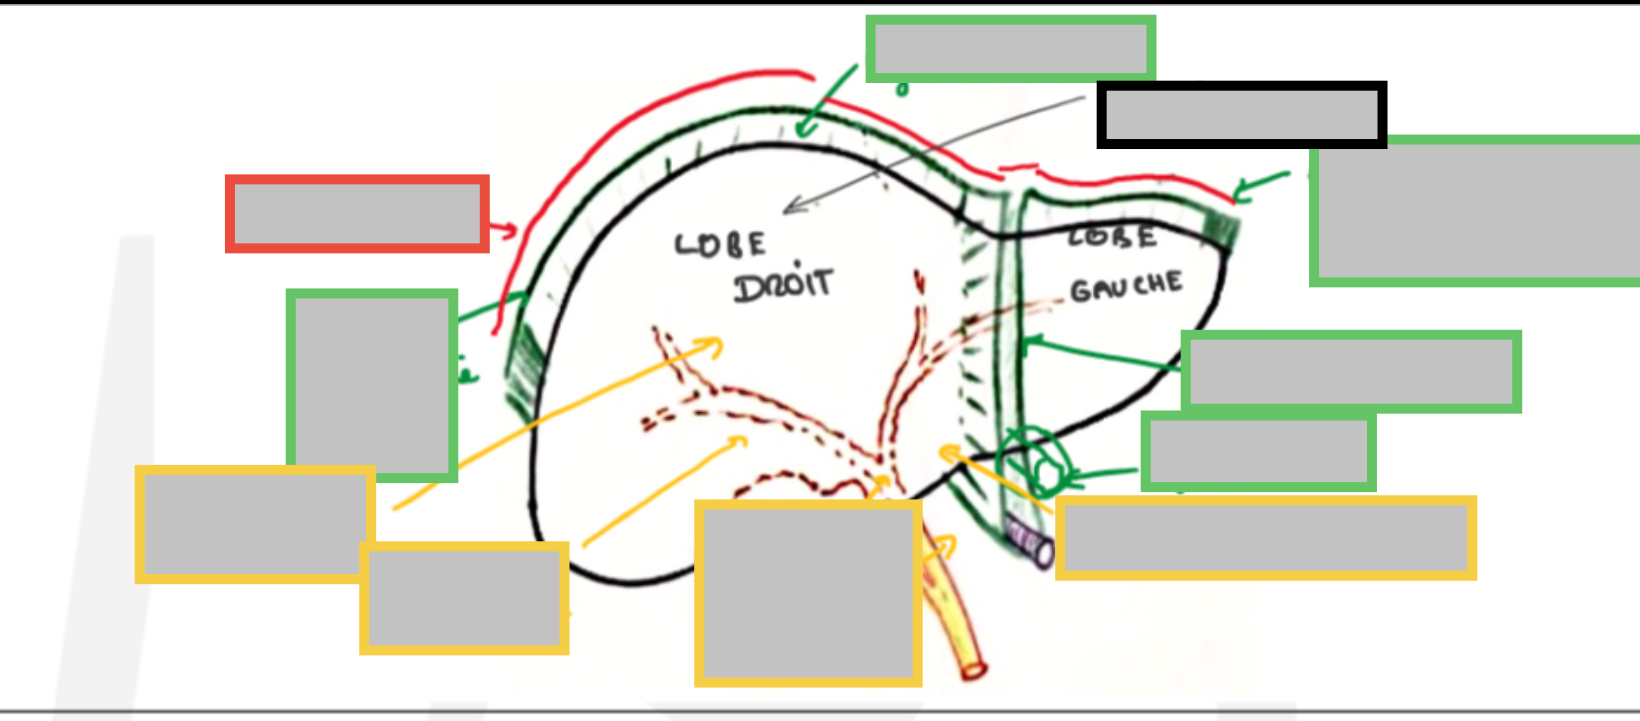 LOBE
DROIT
LOBE
GAUCHE